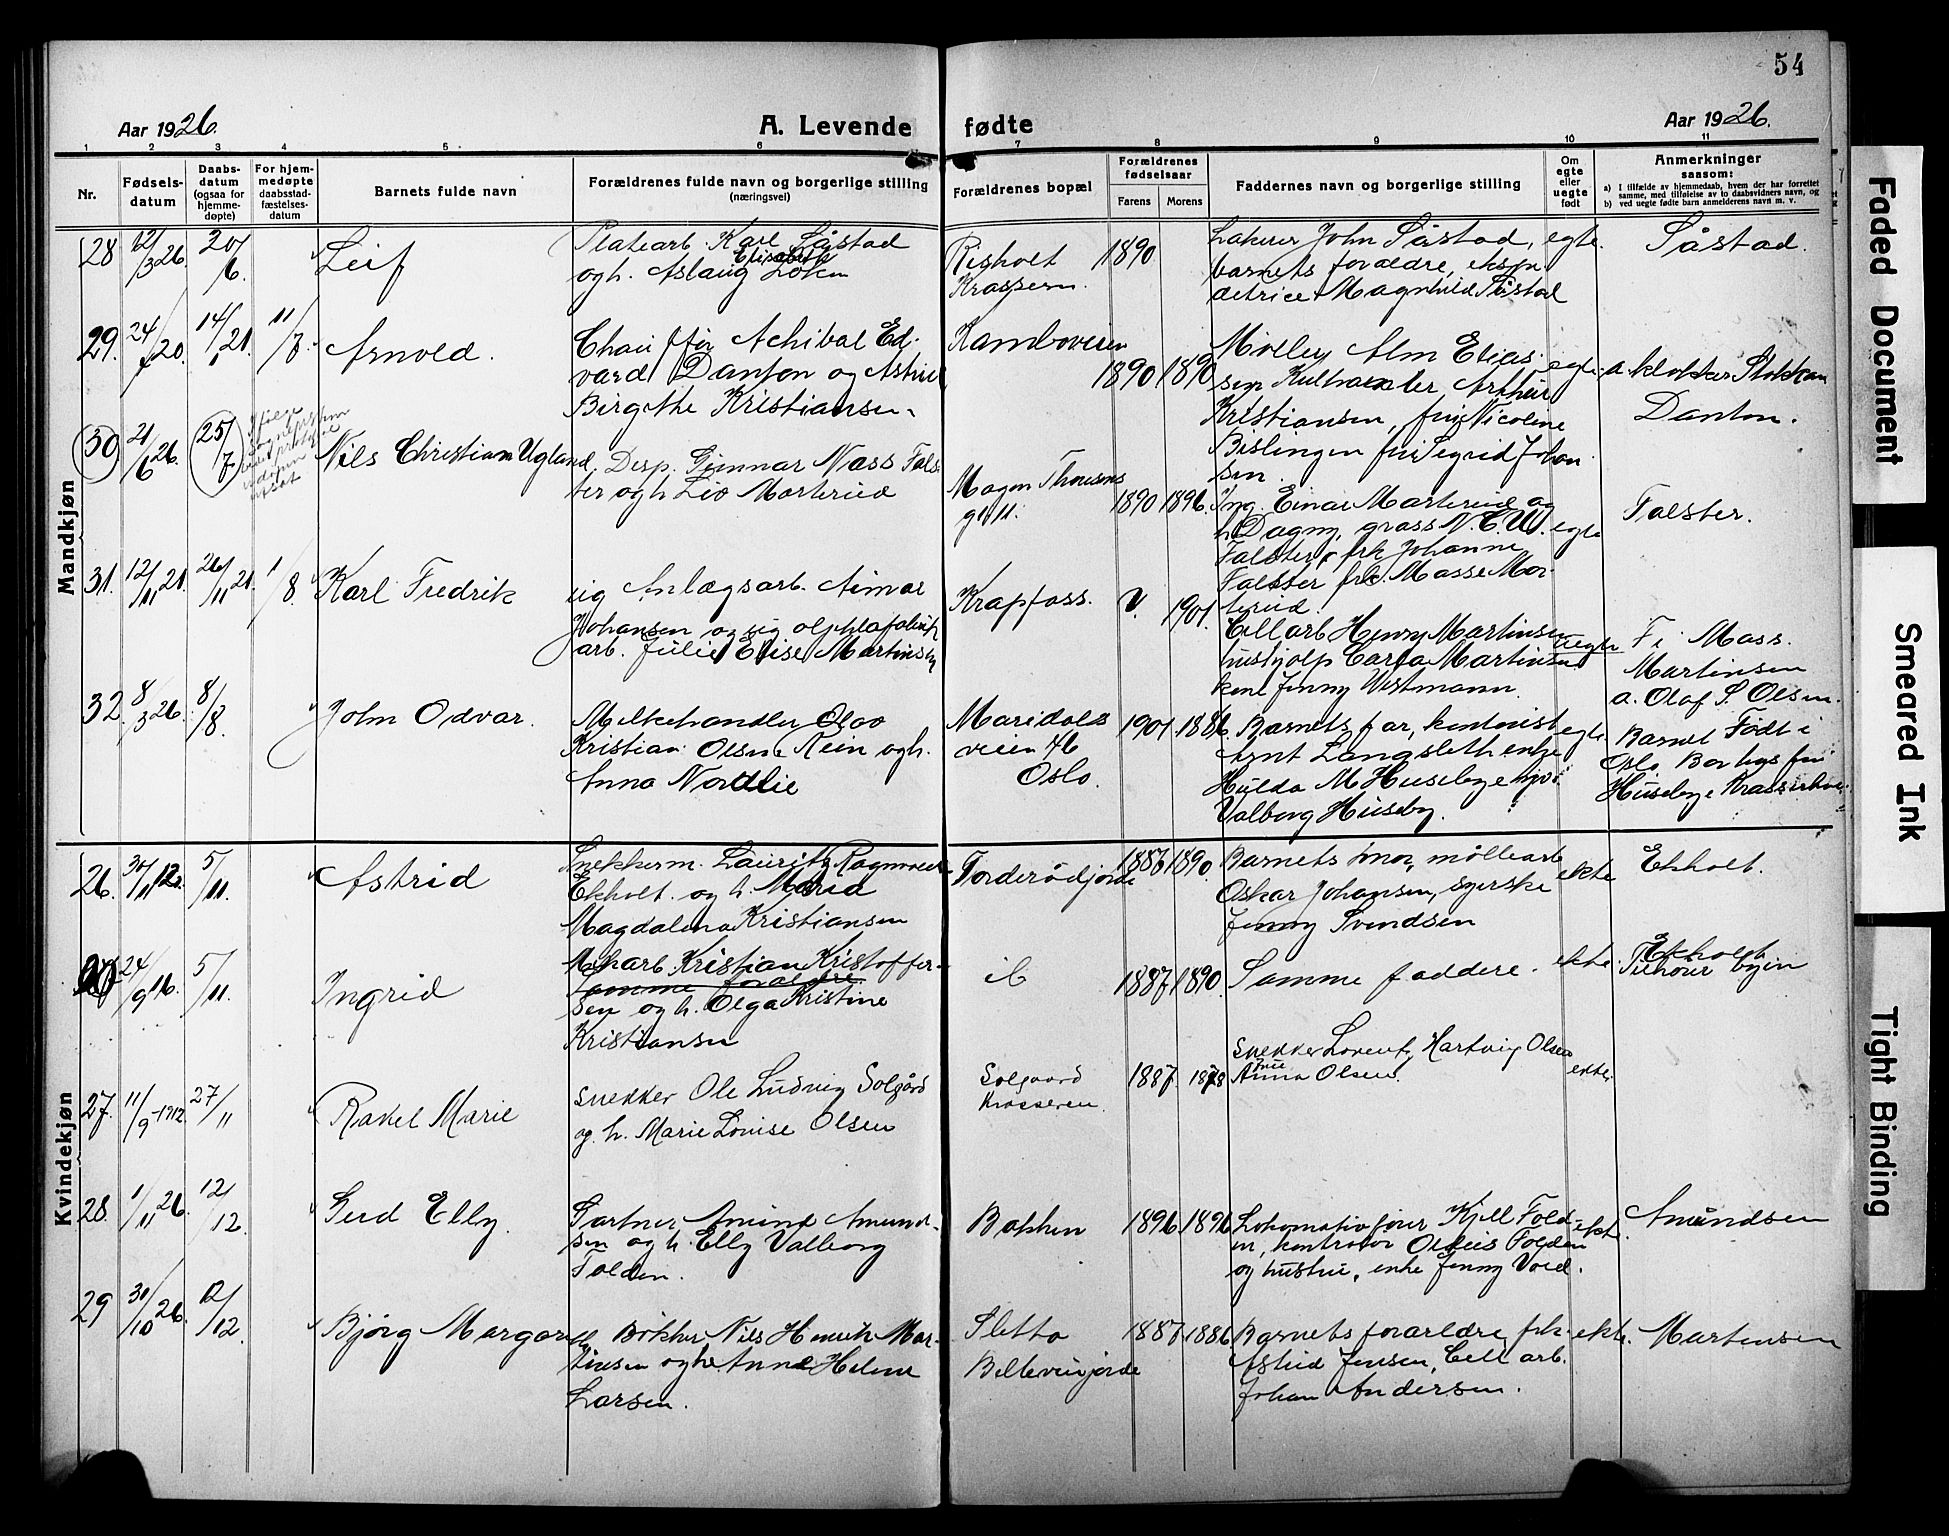 54
Aar 1926. A. Levende fødte Aar 1926.
1 2 3 4 5 6 7 8 9 10 11
Nr.
Fødsels-
datum
Daabs-
datum
(ogsaa for
hjemme-
døpte)
For hjem-
medøpte
daabsstad-
fæstelses-
datum
Barnets fulde navn
Forældrenes fulde navn og borgerlige stilling
(næringsvei)
Forældrenes bopæl
Forældrenes
fødselsaar
Farens Morens
Faddernes navn og borgerlige stilling
Om
egte
eller
uegte
født
Anmerkninger
saasom:
a) I tilfælde av hjemmedaab, hvem der har forrettet
samme, med tilføielse av to daabsvidners navn, og
b) ved uegte fødte barn anmelderens navn m. v.
Mandkjøn
28 12/3 26. 20/6. Leif
Platearb. Karl Såstad
Elisabeth
og h. Aslaug Løken
Risholt
Krossern.
1890
John Såstad,
barnets forældre,
Magnhild Såstad
egte.
Såstad.
29. 14/1 21. 11/7. Arnold.
Chauffør Achibal Ed-
vard Danton og Astrid
Birgithe Kristiansen.
Kamboveien
1890 1890
Molley Alm Elias-
sen Arthur
Kristiansen, fru Nicoline
Bislingen fru Sigrid Johan
sen.
egte.
a. klokker Stokkan
Danton.
30 21/6 26. 25/7 Nils Christian Ugland.
Disp. Gunnar Næss Fals-
ter og h. Liv Marterud
Magen Thoresens
g. 11.
1890 1896.
Ing. Einar Marterud og
h. Dagny, gross N. C. U.
Falster, frk Johanne
Falster frk. Masse Mar-
terud.
egte
Falster.
31. 12/11 21. 26/11 21. 1/8. Karl Fredrik
ug Anlægsarb. Aimar
Johansen og ug
arb. Julie Elise Martinsen
Krapfoss.
1901.
Cell arb Henry Martinsen
hushjelp Carla Martinsen
Jenny Westmann.
uegte
Fi Mass.
Martinsen
a. Olaf S. Olsen.
32 8/3 26. 8/8. John Odvar.
Melkehandler Olav
Kristian Olsen Rein og h.
Anna Nordlie
Maridals
veien 46
Oslo.
1901 1886.
Barnets far, kontorist
Arnt Langsleth enke
Hulda M Huseby
Valborg Huseby.
egte.
Barnet Født i
Oslo
Huseby
Kvindekjøn
26. 5/11. Astrid
Snekkerm. Lauritz Ragnvald
Ekholt. og h. Maria
Magdalena Kristiansen
Torderødjorde
1886 1890.
Barnets mor, møllearb
Oskar Johansen, syerske
Jenny Svendsen
ekte
Ekholt.
24/9 16. 5/11. Ingrid
Kristian Kristoffer-
Samme forældre
sen og h. Olga Kristine
Kristiansen
ib
1887 1890.
Samme faddere.
ekte.
Ekholt
27. 11/9-1912 27/11 Rakel Marie
snekker Ole Ludvig Solgård
og. h. Marie Louise Olsen
Solgaard
Krosseren.
1887. 1878
snekker Lorentz Hartvig Olsen
frue
Anna Olsen.
ekte.
28. 1/11 26. 12/12. Gerd Elly.
Gartner Amund Amund-
sen og h. Elly Valborg
Folden.
Bakken
1896 1896
Lokomotivfører Kjell Fold-
en, kontrolør Folden
og hustru, enke Jenny Vold.
ekte.
Amundsen
29 30/10 26. 12/12. Bjørg Margareth
Bøkker Nils Henrik Mar-
tinsen og h. Anna Helene
Larsen.
Sletta
Bellevuejorde
1887 1886
Barnets forældre, frk.
Astrid Jensen, Cell arb.
Johan Andersen.
ekte.
Martensen
Faded Document
Smeared Ink
Tight Binding